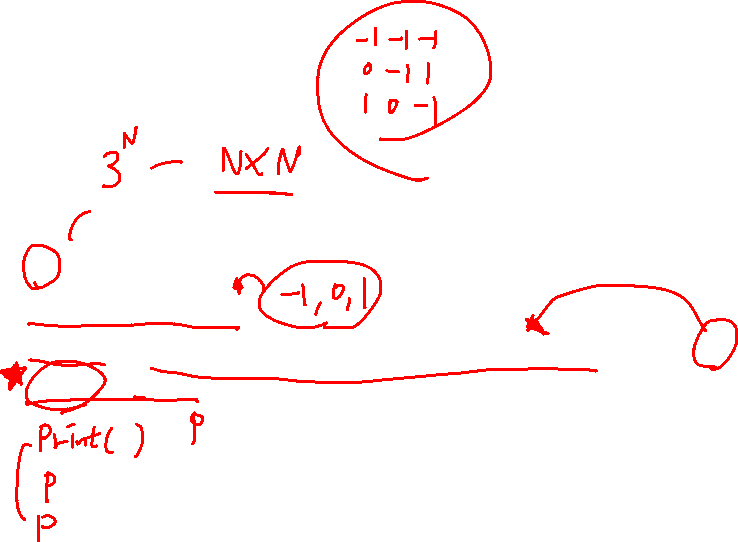 -1 -1 -1
0 -1 1
1 0 -1
3^N - N×N
-1, 0, 1
Print( ) P
P
P